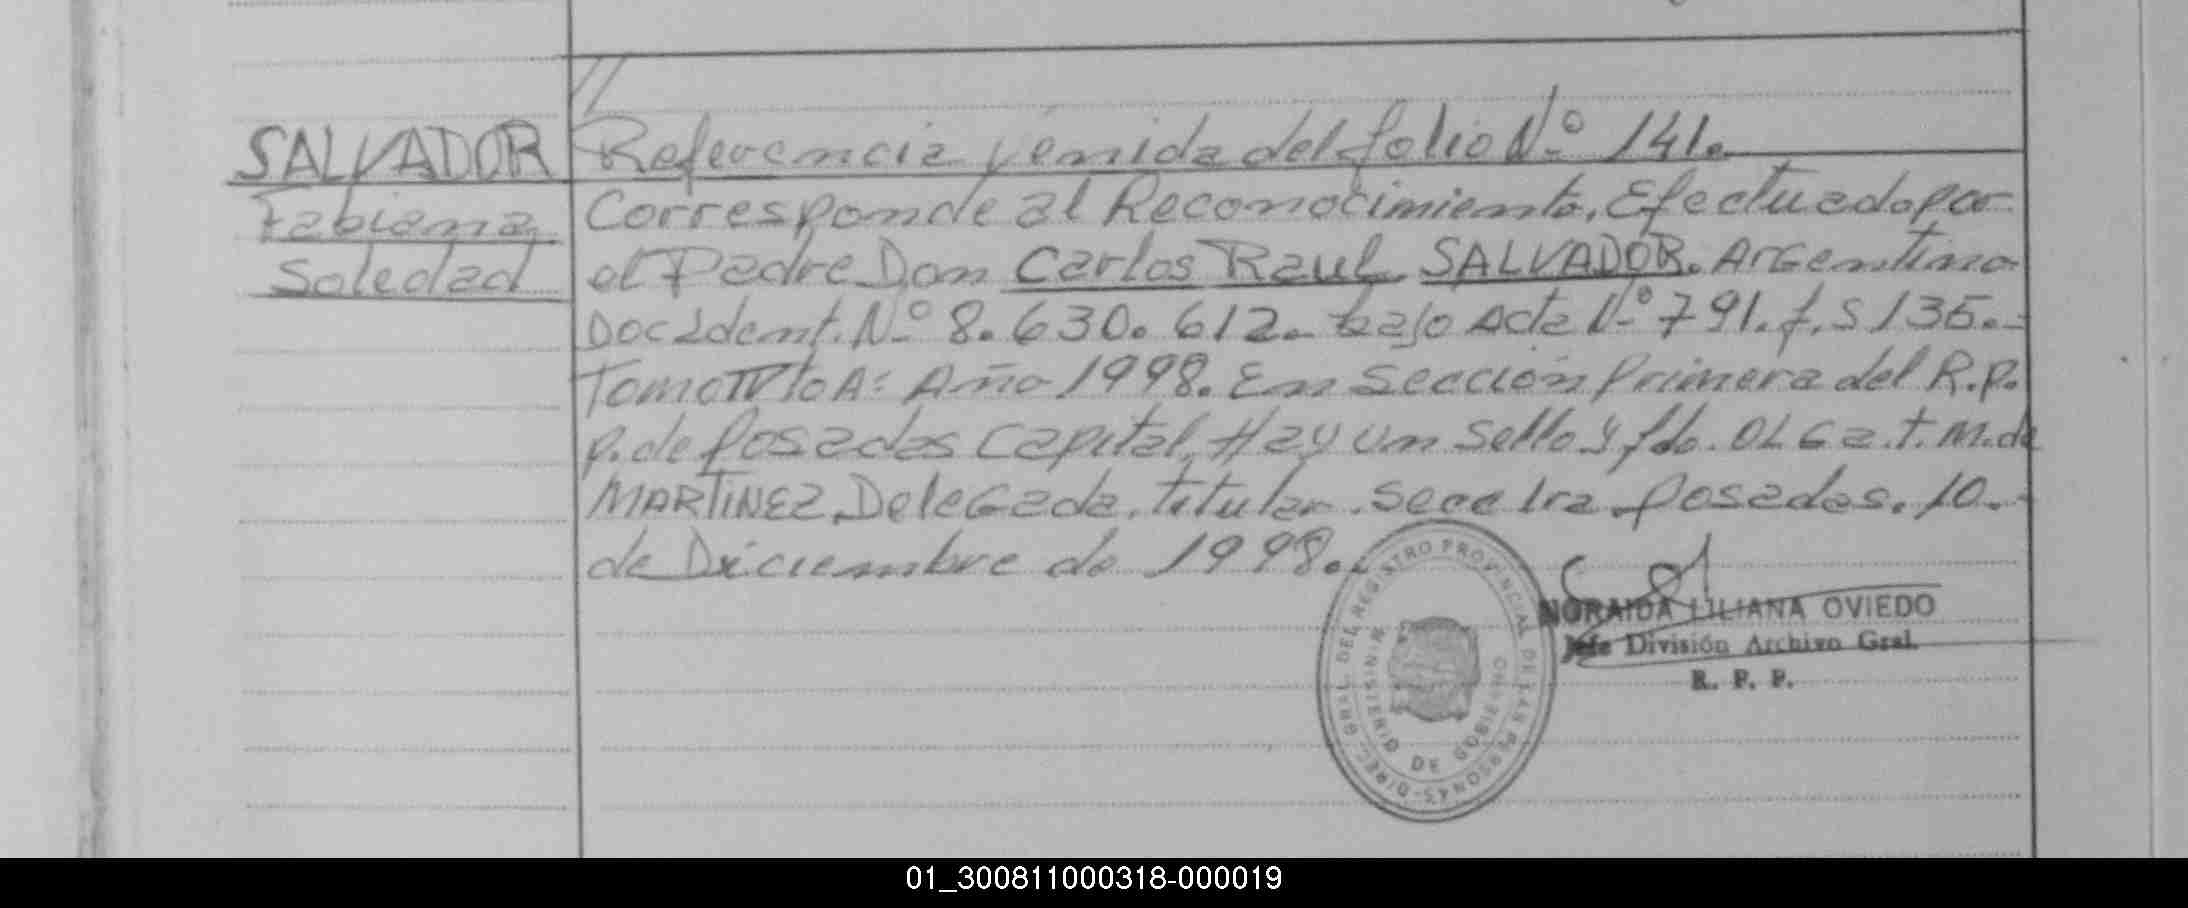 //
SALVADOR
Fabiana
Soledad
Referencia venida del folio Nº 141.
Corresponde al Reconocimiento, Efectuado por
el Padre Don Carlos Raul SALVADOR. Argentino
Doc Ident. Nº 8.630.612. bajo Acta Nº 791. f.s 135.-
Tomo IV to A: Año 1998. En Sección Primera del R.p.
p. de Posadas Capital, Hay un Sello y fdo. OLGa. t. M. de
MARTINEZ Delegada, titular. Secc 1ra posadas. 10.-
de Diciembre de 1998.-
DIREC. GRAL. DEL REGISTRO PROVINCIAL DE LAS PERSONAS
MINISTERIO DE GOBIERNO
NORAIDA LILIANA OVIEDO
Jefe División Archivo Gral.
R. P. P.
01_300811000318-000019